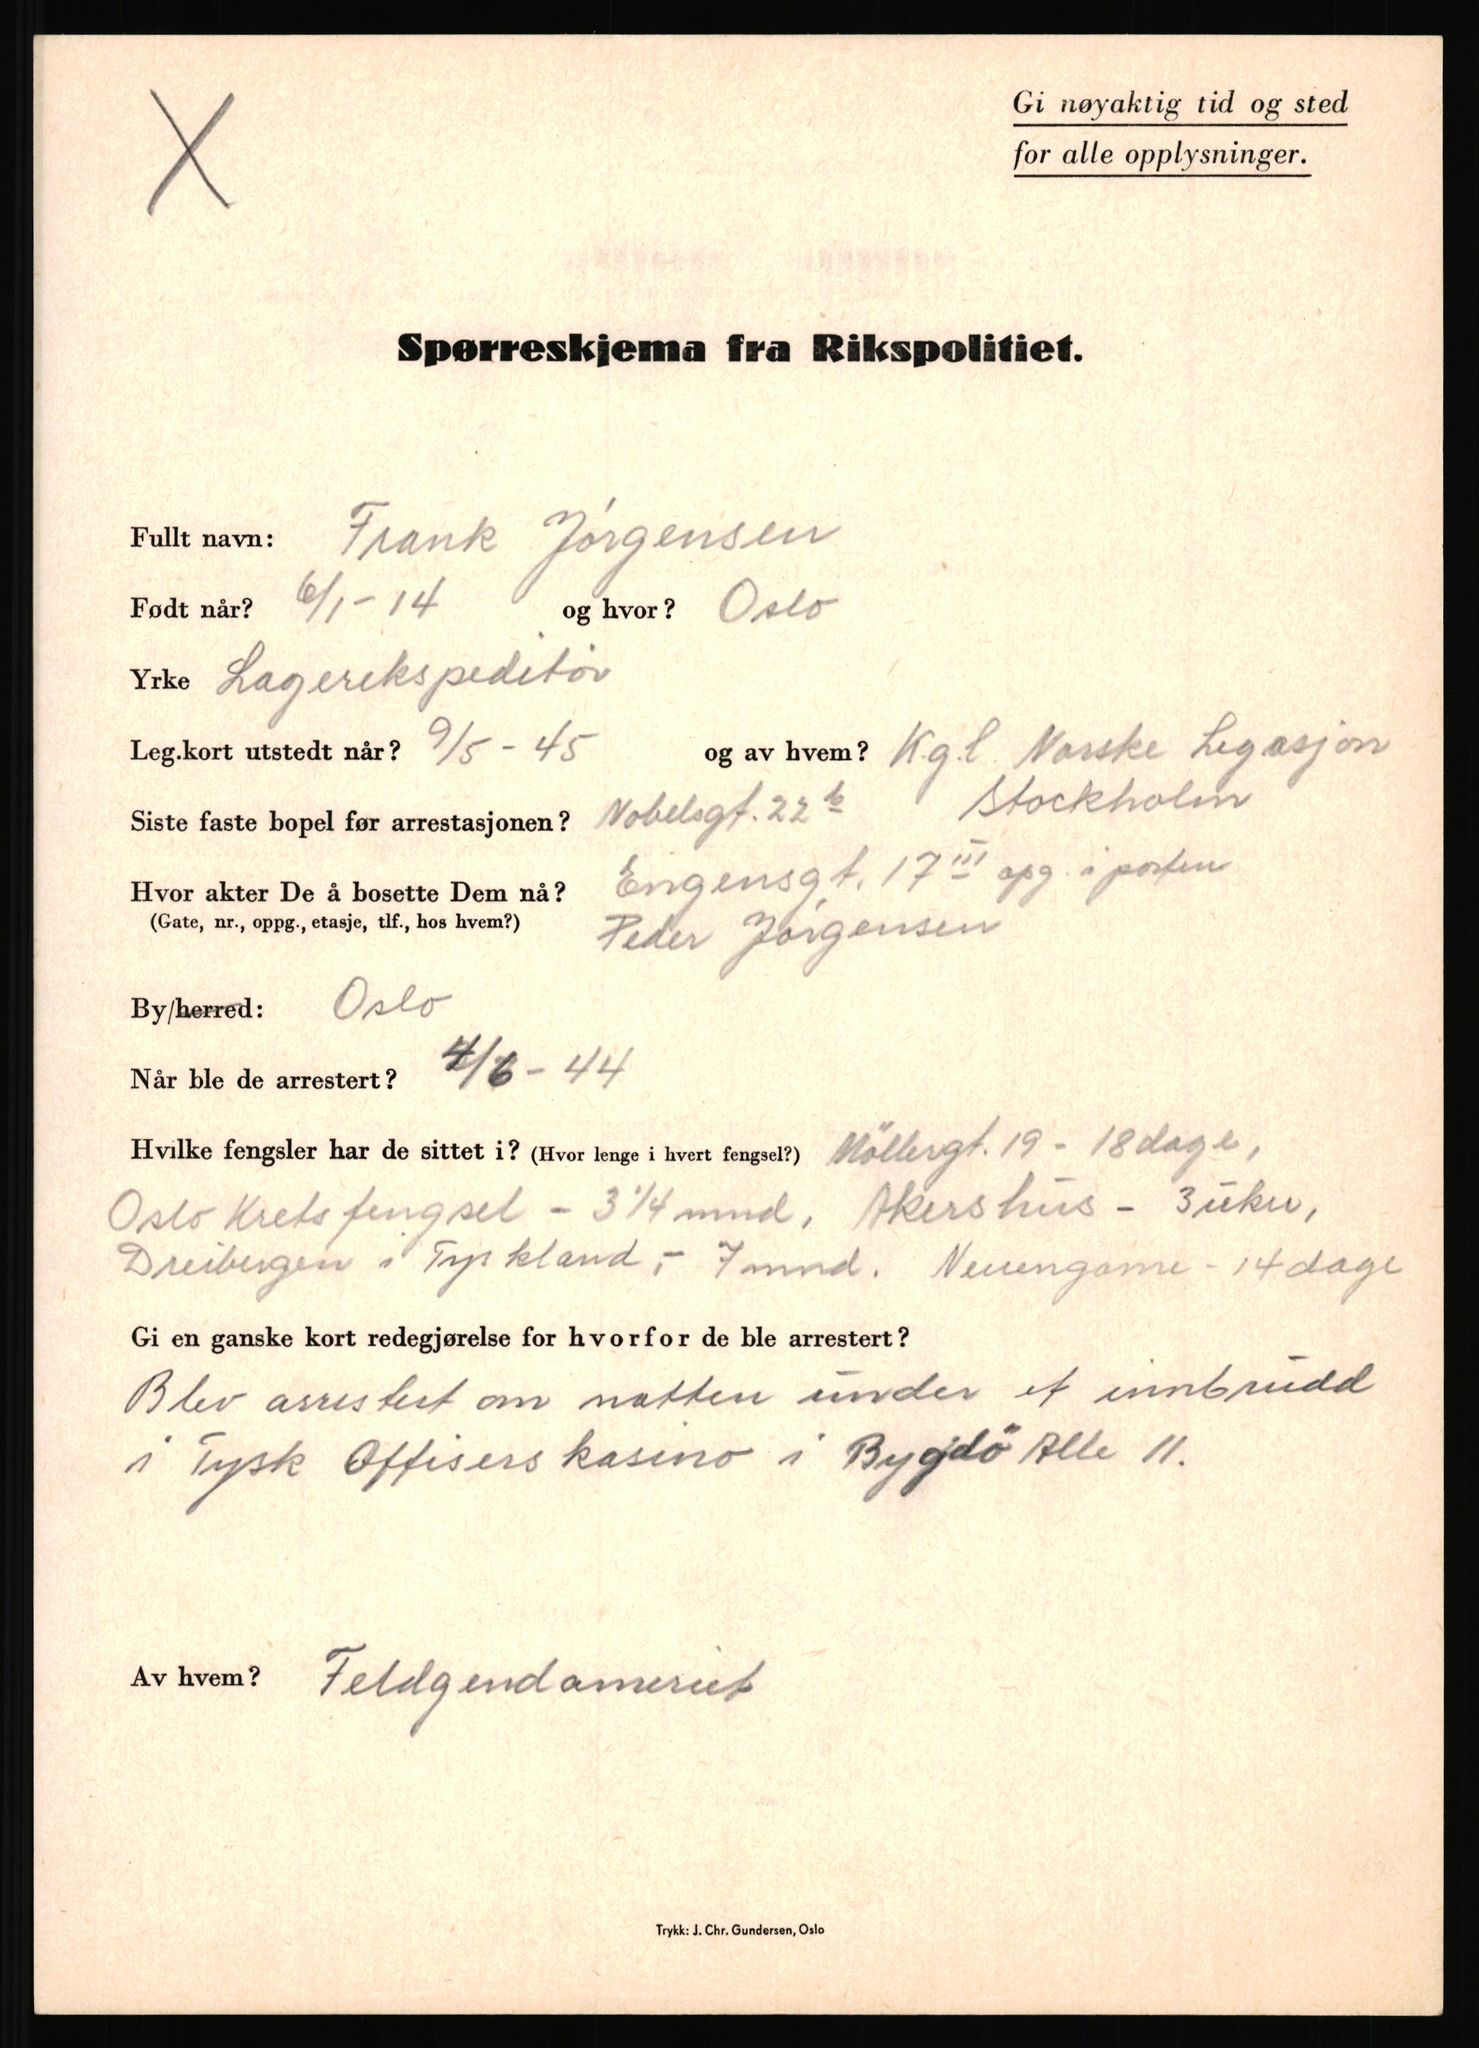 Gi nøyaktig tid og sted
for alle opplysninger.
Spørreskjema fra Rikspolitiet.
Fullt navn: Frank Jörgensen
Født når? 6/1-14 og hvor? Oslo
Yrke Lagerekspeditör
Leg.kort utstedt når? 9/5-45 og av hvem? Kgl. Norske Legasjon
Siste faste bopel før arrestasjonen? Nobelsgt. 22b Stockholm
Hvor akter De å bosette Dem nå? Eugensgt. 17 III opg. i porten
(Gate, nr., oppg., etasje, tlf., hos hvem?) Peder Jörgensen
By/herred: Oslo
Når ble de arrestert? 4/6-44
Hvilke fengsler har de sittet i? (Hvor lenge i hvert fengsel?) Möllergt. 19 - 18 dage,
Oslo Kretsfengsel - 3 1/4 mnd, Akershus - 3 uker,
Dreibergen i Tyskland, - 7 mnd. Neuengame - 14 dage
Gi en ganske kort redegjørelse for hvorfor de ble arrestert?
Blev arrestert om natten under et innbrudd
i Tysk Offiserskasino i Bygdö Alle 11.
Av hvem? Feldgendameriet
Trykk: J. Chr. Gundersen, Oslo